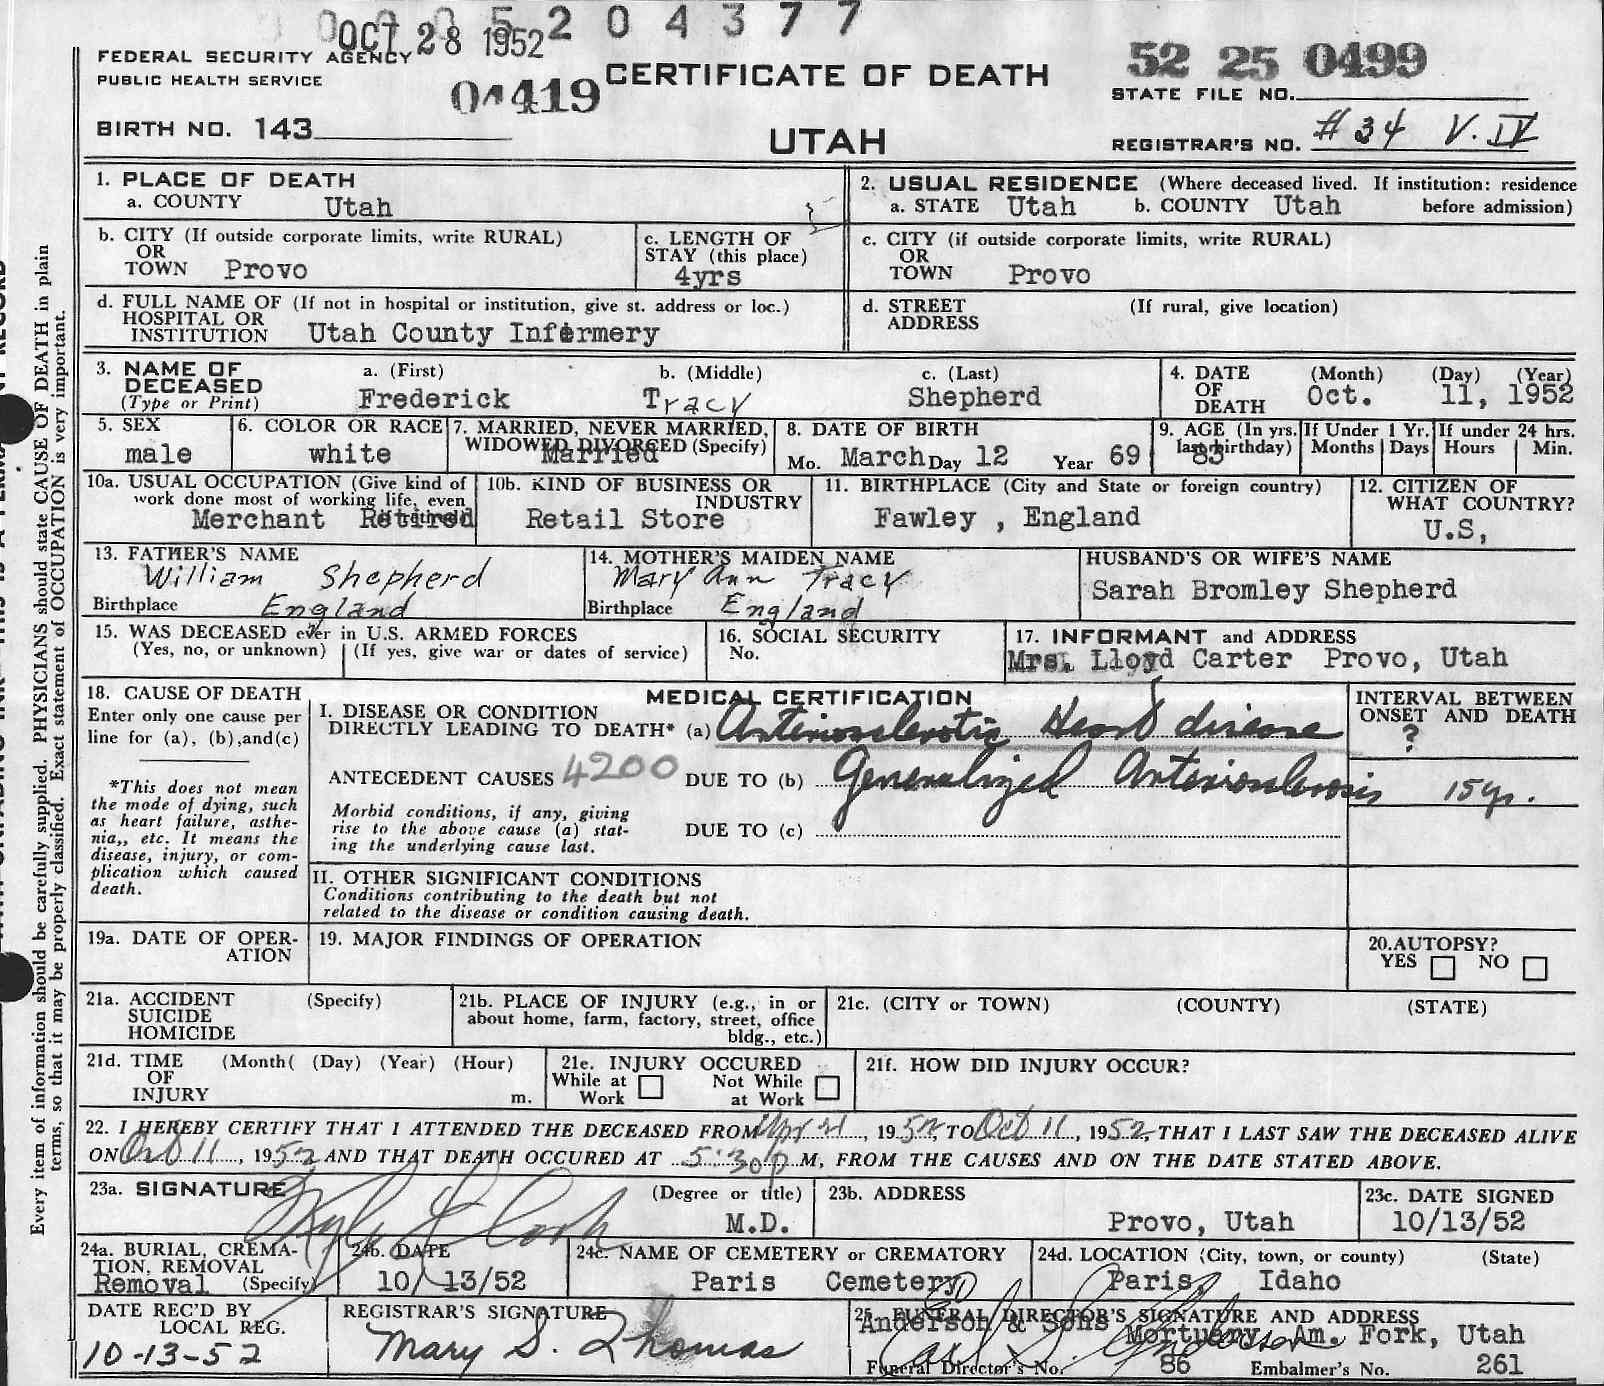 OCT 28 1952 2 0 4 3 7 7
FEDERAL SECURITY AGENCY
PUBLIC HEALTH SERVICE
04419
CERTIFICATE OF DEATH
52 25 0499
STATE FILE NO.
BIRTH NO. 143
UTAH
REGISTRAR'S NO. #34 V. IV
1. PLACE OF DEATH
a. COUNTY Utah
2. USUAL RESIDENCE (Where deceased lived. If institution: residence
a. STATE Utah b. COUNTY Utah before admission)
b. CITY (If outside corporate limits, write RURAL)
OR
TOWN Provo
c. LENGTH OF
STAY (this place)
4yrs
c. CITY (if outside corporate limits, write RURAL)
OR
TOWN Provo
d. FULL NAME OF (If not in hospital or institution, give st. address or loc.)
HOSPITAL OR
INSTITUTION Utah County Infermery
d. STREET (If rural, give location)
ADDRESS
3. NAME OF
DECEASED
(Type or Print)
a. (First)
Frederick
b. (Middle)
Tracy
c. (Last)
Shepherd
4. DATE (Month) (Day) (Year)
OF
DEATH Oct. 11, 1952
5. SEX
male
6. COLOR OR RACE
white
7. MARRIED, NEVER MARRIED,
WIDOWED DIVORCED (Specify)
Married
8. DATE OF BIRTH
Mo. March Day 12 Year 69
9. AGE (In yrs.
last birthday)
83
If Under 1 Yr.
Months Days
If under 24 hrs.
Hours Min.
10a. USUAL OCCUPATION (Give kind of
work done most of working life, even
if retired)
Merchant Retired
10b. KIND OF BUSINESS OR
INDUSTRY
Retail Store
11. BIRTHPLACE (City and State or foreign country)
Fawley , England
12. CITIZEN OF
WHAT COUNTRY?
U.S,
13. FATHER'S NAME
William Shepherd
Birthplace England
14. MOTHER'S MAIDEN NAME
Mary Ann Tracy
Birthplace England
HUSBAND'S OR WIFE'S NAME
Sarah Bromley Shepherd
15. WAS DECEASED ever in U.S. ARMED FORCES
(Yes, no, or unknown) (If yes, give war or dates of service)
16. SOCIAL SECURITY
No.
17. INFORMANT and ADDRESS
Mrs. Lloyd Carter Provo, Utah
18. CAUSE OF DEATH
Enter only one cause per
line for (a), (b),and(c)
*This does not mean
the mode of dying, such
as heart failure, asthe-
nia,, etc. It means the
disease, injury, or com-
plication which caused
death.
MEDICAL CERTIFICATION
I. DISEASE OR CONDITION
DIRECTLY LEADING TO DEATH* (a) Arteriosclerotic Heart disease
ANTECEDENT CAUSES 4200 DUE TO (b) Generalized Arteriosclerosis
Morbid conditions, if any, giving
rise to the above cause (a) stat-
ing the underlying cause last.
DUE TO (c)
INTERVAL BETWEEN
ONSET AND DEATH
?
15 yr.
II. OTHER SIGNIFICANT CONDITIONS
Conditions contributing to the death but not
related to the disease or condition causing death.
19a. DATE OF OPER-
ATION
19. MAJOR FINDINGS OF OPERATION
20.AUTOPSY?
YES NO
21a. ACCIDENT (Specify)
SUICIDE
HOMICIDE
21b. PLACE OF INJURY (e.g., in or
about home, farm, factory, street, office
bldg., etc.)
21c. (CITY or TOWN) (COUNTY) (STATE)
21d. TIME (Month( (Day) (Year) (Hour)
OF
INJURY m.
21e. INJURY OCCURED
While at Not While
Work at Work
21f. HOW DID INJURY OCCUR?
22. I HEREBY CERTIFY THAT I ATTENDED THE DECEASED FROM Apr 21, 1952, TO Oct 11, 1952, THAT I LAST SAW THE DECEASED ALIVE
ON Oct 11, 1952 AND THAT DEATH OCCURED AT 5:30 p M, FROM THE CAUSES AND ON THE DATE STATED ABOVE.
23a. SIGNATURE
(Degree or title)
M.D.
23b. ADDRESS
Provo, Utah
23c. DATE SIGNED
10/13/52
24a. BURIAL, CREMA-
TION, REMOVAL
Removal (Specify)
24b. DATE
10/ 13/52
24c. NAME OF CEMETERY or CREMATORY
Paris Cemetery
24d. LOCATION (City, town, or county) (State)
Paris, Idaho
DATE REC'D BY
LOCAL REG.
10-13-52
REGISTRAR'S SIGNATURE
Mary S. Thomas
25. FUNERAL DIRECTOR'S SIGNATURE AND ADDRESS
Anderson & Sons Mortuary, Am. Fork, Utah
Funeral Director's No. 86 Embalmer's No. 261
Every item of information should be carefully supplied. PHYSICIANS should state CAUSE OF DEATH in plain
terms, so that it may be properly classified. Exact statement of OCCUPATION is very important.